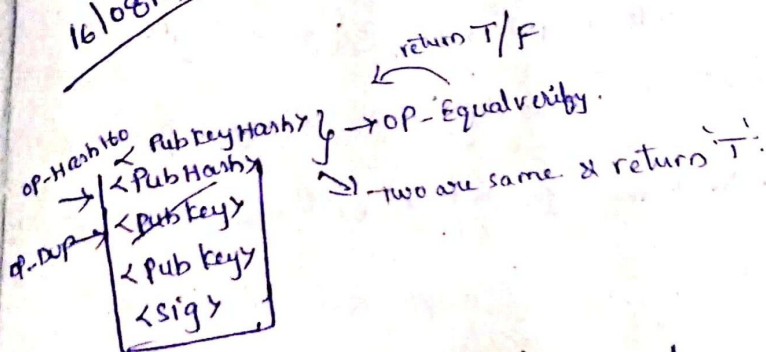 16/08
return T/F
OP-Hash160 < PubKeyHash> } → OP-Equalverify.
<PubHash> Two are same & return 'T'.
OP-DUP → <pubkey>
<Pub key>
<sig>